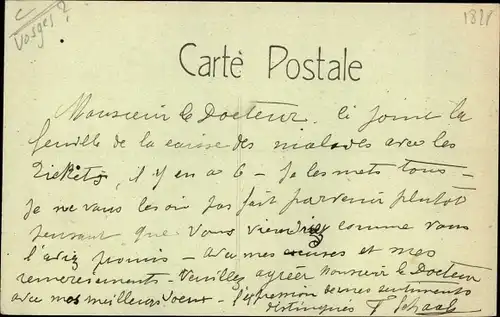 Vosges?
Carte Postale
Monsieur le Docteur. Ci joint la
feuille de la caisse des malades avec les
Tickets, il y en a 6 - Je les mets tous -
Je ne vous les ai pas fait parvenir plutôt
pensant que vous viendriez comme vous
l'aviez promis - avec mes excuses et mes
remerciements - Veuillez agréer Monsieur le Docteur
avec mes meilleurs voeux - l'expression de mes sentiments
distingués